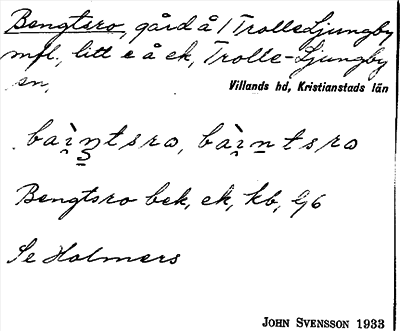 Bengtsro, gård å 1 Trolle Ljungby
mfl., litt e å ek, Trolle-Ljungby
sn,
Villands hd, Kristianstads län
bai̯n̥tsro, bài̯ntsro
Bengtsro bek, ek, kb,
Se Holmers
JOHN SVENSSON 1933